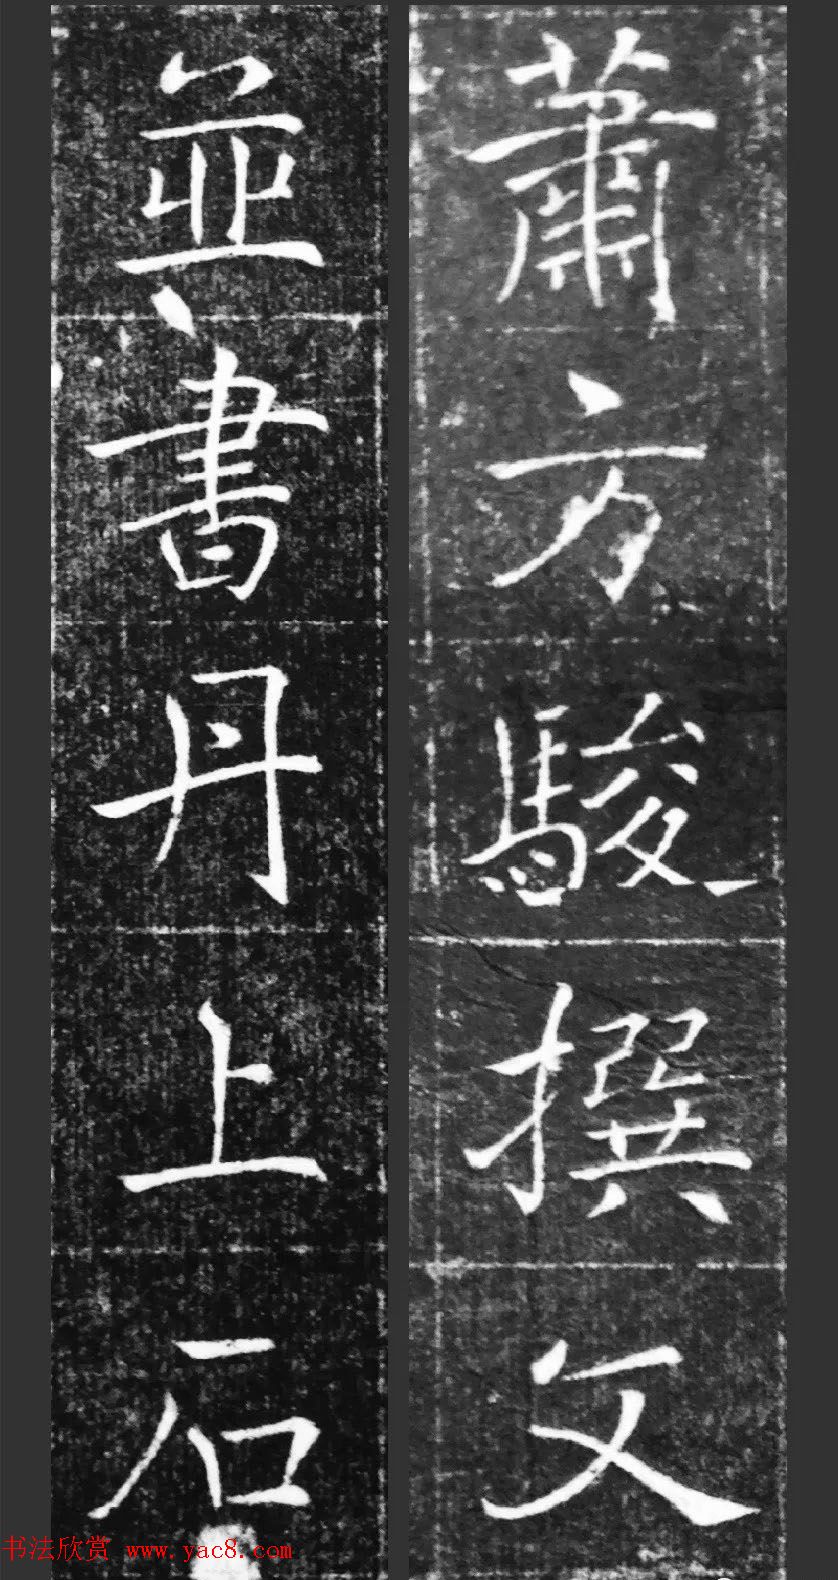 蕭方駿撰文
並書丹上石
书法欣赏 www.yac8.com